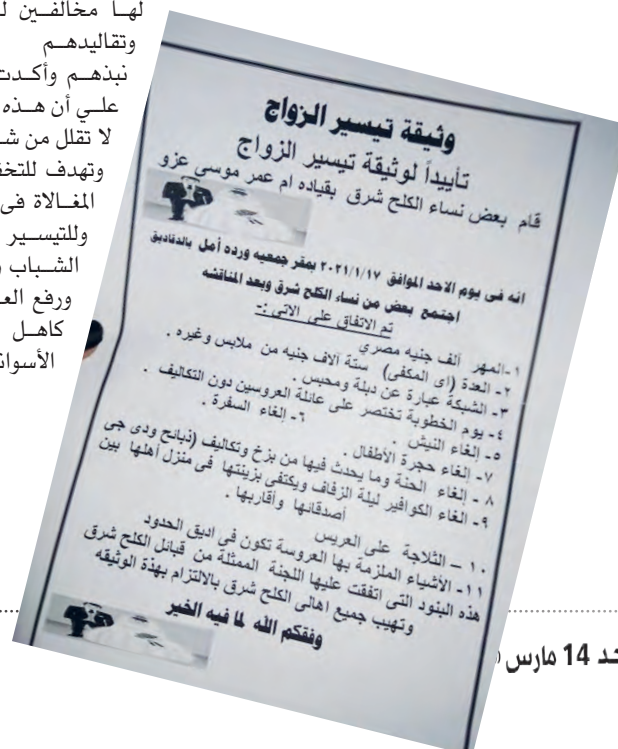 لهـا مخالفـين ل
وتقاليدهـم
نبذهـم وأكـدت
علـي أن هـذه
لا تقلل من شـ
وتهدف للتخف
المغـالاة فى
وللتيسـير
الشـباب و
ورفع العـ
كاهـل
الأسوانـ
وثيقة تيسير الزواج
تأييداً لوثيقة تيسير الزواج
قام بعض نساء الكلح شرق بقياده ام عمر موسي عزو
انه فى يوم الاحد الموافق ٢٠٢١/١/١٧ بمقر جمعيه ورده أمل بالدقاديق
اجتمع بعض من نساء الكلح شرق وبعد المناقشه
تم الاتفاق على الاتى :-
١-المهر ألف جنيه مصري
٢- العدة (اى المكفى) ستة آلاف جنيه من ملابس وغيره .
٣- الشبكة عبارة عن دبلة ومحبس .
٤- يوم الخطوبة تختصر على عائلة العروسين دون التكاليف .
٥- إلغاء النيش . ٦- إلغاء السفرة .
٧- إلغاء حجرة الأطفال .
٨ - إلغاء الحنة وما يحدث فيها من بزخ وتكاليف (ذبائح ودى جى
٩- الغاء الكوافير ليلة الزفاف ويكتفى بزينتها فى منزل أهلها بين
أصدقائها وأقاربها .
١٠ – الثلاجة على العريس
١١- الأشياء الملزمة بها العروسة تكون فى اديق الحدود
هذه البنود التى اتفقت عليها اللجنة الممثلة من قبائل الكلح شرق
وتهيب جميع اهالى الكلح شرق بالالتزام بهذة الوثيقه
وفقكم الله لما فيه الخير
حـد 14 مارس